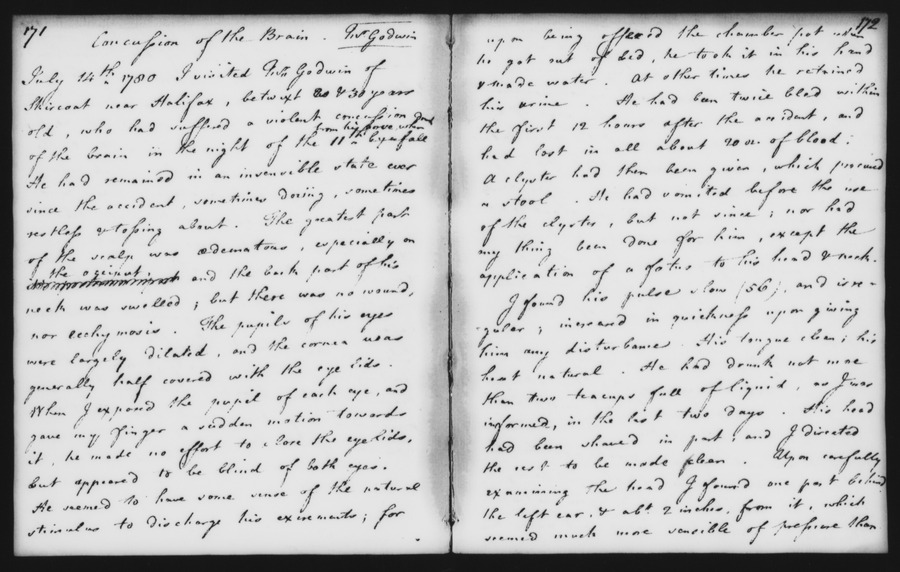 171
Concussion of the Brain. Tho.s Godwin
July 14th 1780 I visited Tho.s Godwin of
Skircoat near Halifax, betwixt 20 & 30 years
old, who had suffered a violent concussion
from his horse, when
of the brain in the night of the 11th by a fall
He had remained in an insensible state ever
since the accident, sometimes dozing, sometimes
restless & tossing about. The greatest part
of the scalp was œdematous, especially on
the occiput;
and the back part of his
neck was swelled; but there was no wound,
nor ecchymosis. The pupils of his eyes
were largely dilated, and the cornea was
generally half covered with the eye lids.
When I exposed the pupil of each eye, and
gave my finger a sudden motion towards
it, he made no effort to close the eyelids,
but appeared to be blind of both eyes.
He seemed to have some sense of the natural
stimulus to discharge his excrements; for
172
upon being offered the chamber pot when
he got out of bed, he took it in his hand
& made water. At other times he retained
his urine. He had been twice bled within
the first 12 hours after the accident, and
had lost in all about 20 oz. of blood:
A clyster had then been given, which procured
a stool. He had vomited before the use
of the clyster, but not since; nor had
any thing been done for him, except the
application of a fotus to his head & neck.
I found his pulse slow (56), and irre-
-gular; increased in quickness upon giving
him any disturbance. His tongue clean; his
heat natural. He had drunk not more
than two teacups full of liquid, as I was
informed, in the last two days. His head
had been shaved in part, and I directed
the rest to be made clean. Upon carefully
examining the head I found one part behind
the left ear, & abt. 2 inches from it, which
seemed much more sensible of pressure than